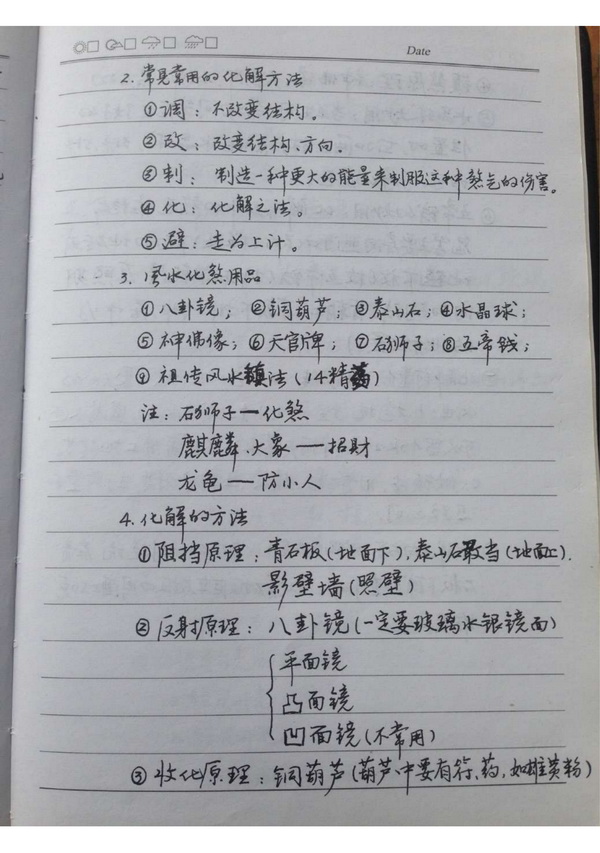 Date
2. 常见常用的化解方法
①调：不改变结构。
②改：改变结构、方向。
③制：制造一种更大的能量来制服这种煞气的伤害。
④化：化解之法。
⑤避：走为上计。
3. 风水化煞用品
①八卦镜；②铜葫芦；③泰山石；④水晶球；
⑤神偶像；⑥天官牌；⑦石狮子；⑧五帝钱；
⑨祖传风水镇法（14精药）
注：石狮子—化煞
麒麟、大象—招财
龙龟—防小人
4. 化解的方法
①阻挡原理：青石板（地面下），泰山石敢当（地面上）.
影壁墙（照壁）
②反射原理：八卦镜（一定要玻璃水银镜面）
平面镜
凸面镜
凹面镜（不常用）
③收化原理：铜葫芦（葫芦中要有符、药，如雄黄粉）